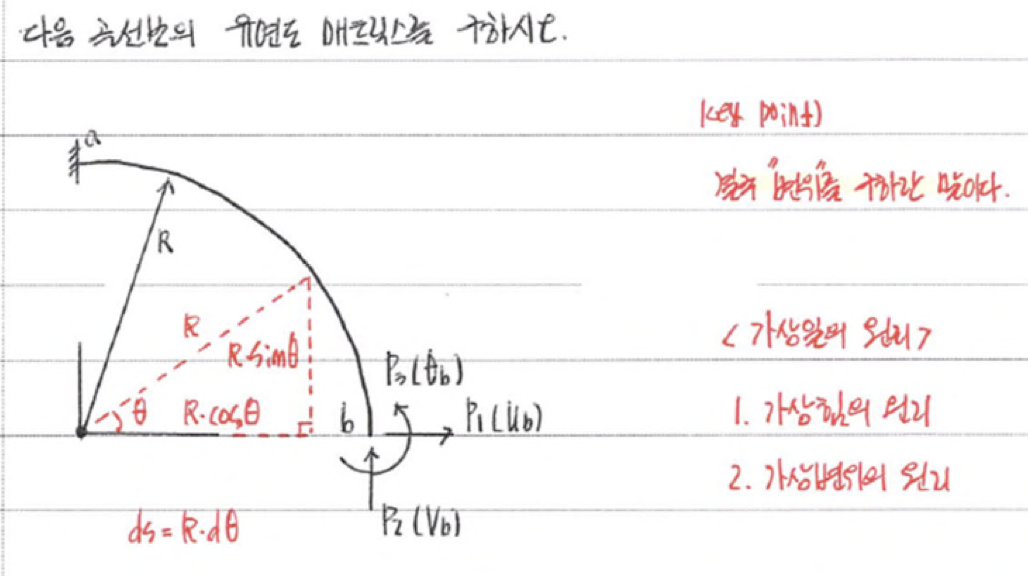 다음 곡선보의 유연도 매트릭스를 구하시오.
key point)
결국 "변위"를 구하란 말이다.
a
R
R
R·sinθ
θ
R·cosθ
b
P₃(θb)
P₁(Ub)
P₂(Vb)
ds = R·dθ
<가상일의 원리>
1. 가상힘의 원리
2. 가상변위의 원리